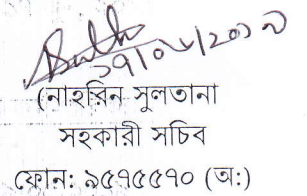 ২৭/০৮/২০১৯
(নাহরিন সুলতানা
সহকারী সচিব
ফোন: ৯৫৭৫৫৭০ (অ:)